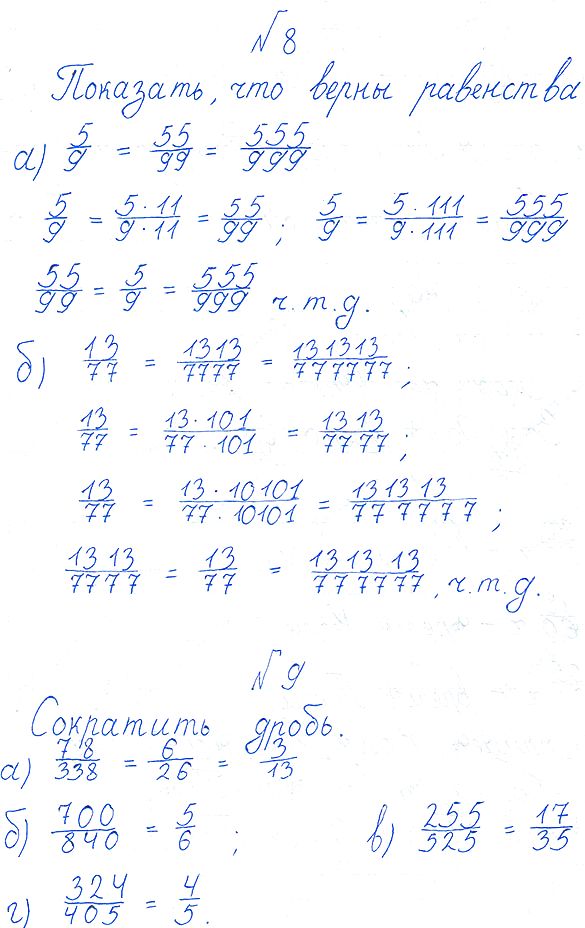 № 8
Показать, что верны равенства
а) 5/9 = 55/99 = 555/999
5/9 = 5·11/9·11 = 55/99 ; 5/9 = 5·111/9·111 = 555/999
55/99 = 5/9 = 555/999 ч.т.д.
б) 13/77 = 1313/7777 = 131313/777777 ;
13/77 = 13·101/77·101 = 1313/7777 ;
13/77 = 13·10101/77·10101 = 131313/777777 ;
1313/7777 = 13/77 = 131313/777777 , ч.т.д.
№ 9
Сократить дробь.
а) 78/338 = 6/26 = 3/13
б) 700/840 = 5/6 ; в) 255/525 = 17/35
г) 324/405 = 4/5 .